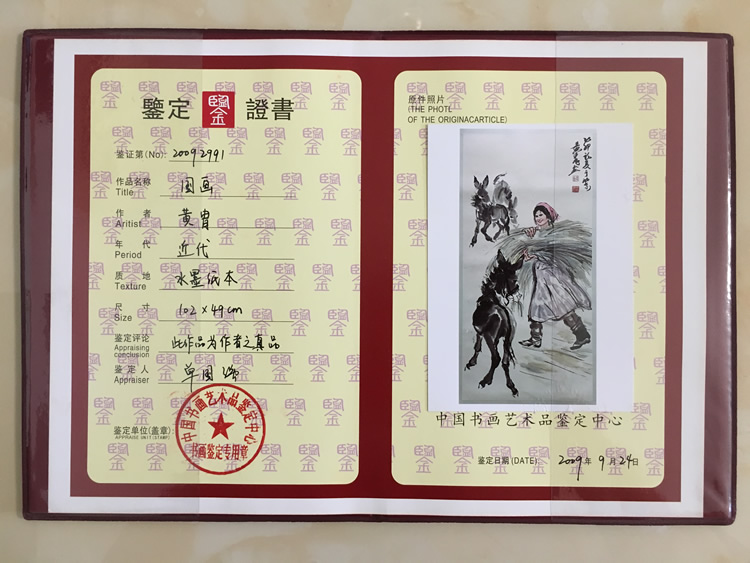 鑒定 鑒 證書
鉴证第(No): 20092991
作品名称 国画
Title
作者 黄胄
Aritist
年代 近代
Period
质地 水墨纸本
Texture
尺寸 102×49cm
Size
鉴定评论 此作品为作者之真品
Appraising
conclusion
鉴定人 单国强
Appraiser
鉴定单位(盖章):
APPRAISE UNIT(STAMP)
中国书画艺术品鉴定中心
书画鉴定专用章
原件照片
(THE PHOTE
OF THE ORIGINACARTICLE)
中国书画艺术品鉴定中心
鉴定日期(DATE) 2009年9月24日